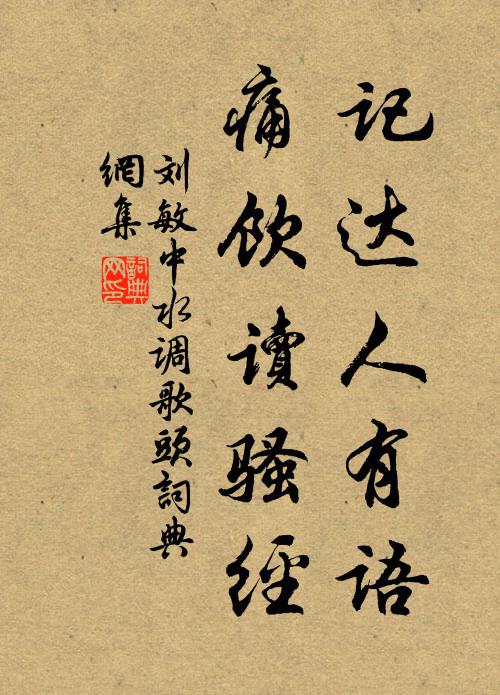 记达人有语
痛饮读骚经
刘敏中水调歌头词典
网集
词典
网印